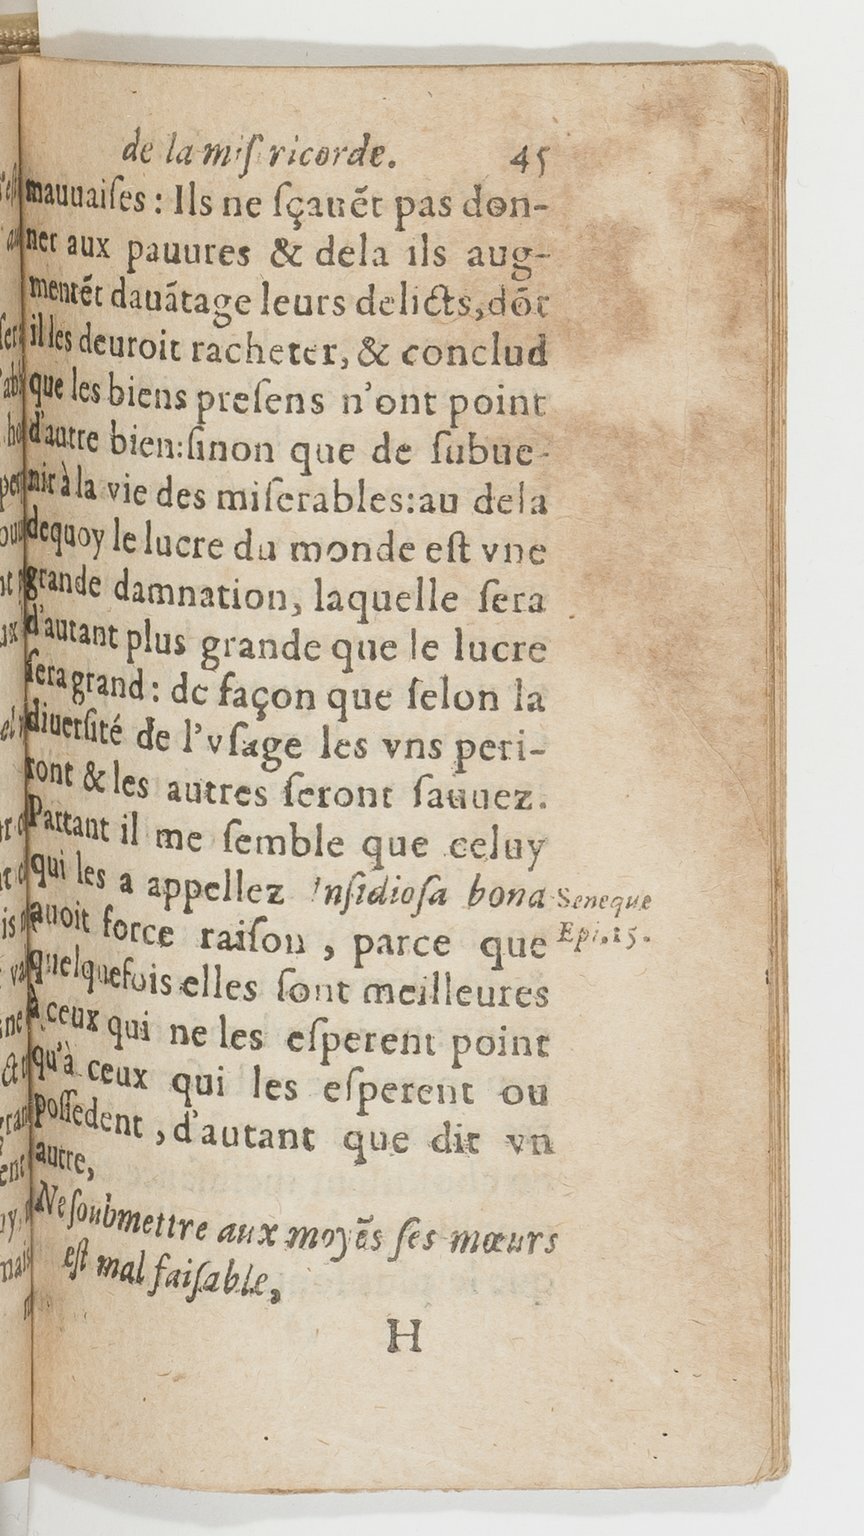 de la miſ ricorde. 45
mauuaiſes : Ils ne ſçauẽt pas don-
ner aux pauures & dela ils aug-
mentẽt dauãtage leurs delicts, dõt
il les deuroit racheter, & conclud
que les biens preſens n'ont point
d'autre bien: ſinon que de ſubue-
nir à la vie des miſerables: au dela
dequoy le lucre du monde eſt vne
grande damnation, laquelle ſera
d'autant plus grande que le lucre
ſera grand : de façon que ſelon la
diuerſité de l'vſage les vns peri-
ront & les autres ſeront ſauuez.
Partant il me ſemble que celuy
qui les a appellez Inſidioſa bona
Seneque
auoit force raiſon , parce que
Epi. 15.
quelquefois elles ſont meilleures
à ceux qui ne les eſperent point
qu'à ceux qui les eſperent ou
poſſedent , d'autant que dit vn
autre,
Ne ſoubmettre aux moyẽs ſes mœurs
eſt mal faiſable,
H